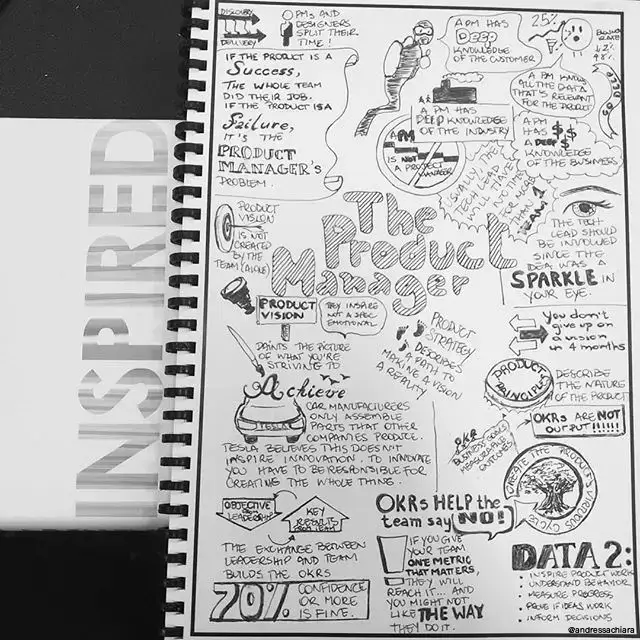 INSPIRED
DISCOVERY
DELIVERY
PMS AND
DESIGNERS
SPLIT THEIR
TIME!
IF THE PRODUCT IS A
Success,
THE WHOLE TEAM
DID THEIR JOB.
IF THE PRODUCT IS A
Failure,
IT'S THE
PRODUCT
MANAGER'S
PROBLEM.
A PM HAS
DEEP
KNOWLEDGE
OF THE CUSTOMER
25%
A PM KNOWS
ALL THE DATA
THAT'S RELEVANT
FOR THE PRODUCT
A PM HAS
DEEP KNOWLEDGE
OF THE INDUSTRY
A PM
HAS $ $
A DEEP $
KNOWLEDGE
OF THE BUSINESS
A PM
IS NOT
A PROJECT
MANAGER
USUALLY THE
TECH LEAD
WILL TAKE
THAN 1
TEAM
PRODUCT
VISION
IS NOT
CREATED
BY THE
TEAM (ALONE)
The
Product
Manager
THE TECH
LEAD SHOULD
BE INVOLVED
SINCE THE
IDEA WAS A
SPARKLE IN
YOUR EYE.
PRODUCT
VISION
THEY INSPIRE
NOT A SPEC
EMOTIONAL
PAINTS THE PICTURE
OF WHAT YOU'RE
STRIVING TO
Achieve
PRODUCT
STRATEGY
DESCRIBES
A PATH TO
MAKING A VISION
A REALITY
You don't
give up on
a vision
in 4 months
PRODUCT
PRINCIPLES
DESCRIBE
THE NATURE
OF THE PRODUCT
TESLA
CAR MANUFACTURERS
ONLY ASSEMBLE
PARTS THAT OTHER
COMPANIES PRODUCE.
TESLA BELIEVES THIS DOESN'T
INSPIRE INNOVATION. TO INNOVATE
YOU HAVE TO BE RESPONSIBLE FOR
CREATING THE WHOLE THING.
OKRs ARE NOT
OUTPUT!!!!!!
OKR
BUSINESS GOALS
MEASURABLE
OUTCOMES
CREATE THE PRODUCT'S VIRTUOUS CYCLE
OBJECTIVE
FROM
LEADERSHIP
KEY
RESULTS
FROM TEAM
THE EXCHANGE BETWEEN
LEADERSHIP AND TEAM
BUILDS THE OKRS
70% CONFIDENCE
OR MORE
IS FINE.
OKRs HELP the
team say NO!
IF YOU GIVE
YOUR TEAM
ONE METRIC
THAT MATTERS,
THEY WILL
REACH IT... AND
YOU MIGHT NOT
LIKE THE WAY
THEY DO IT.
DATA 2:
• INSPIRE PRODUCT WORK
• UNDERSTAND BEHAVIOR
• MEASURE PROGRESS
• PROVE IF IDEAS WORK
• INFORM DECISIONS
@andressachiara